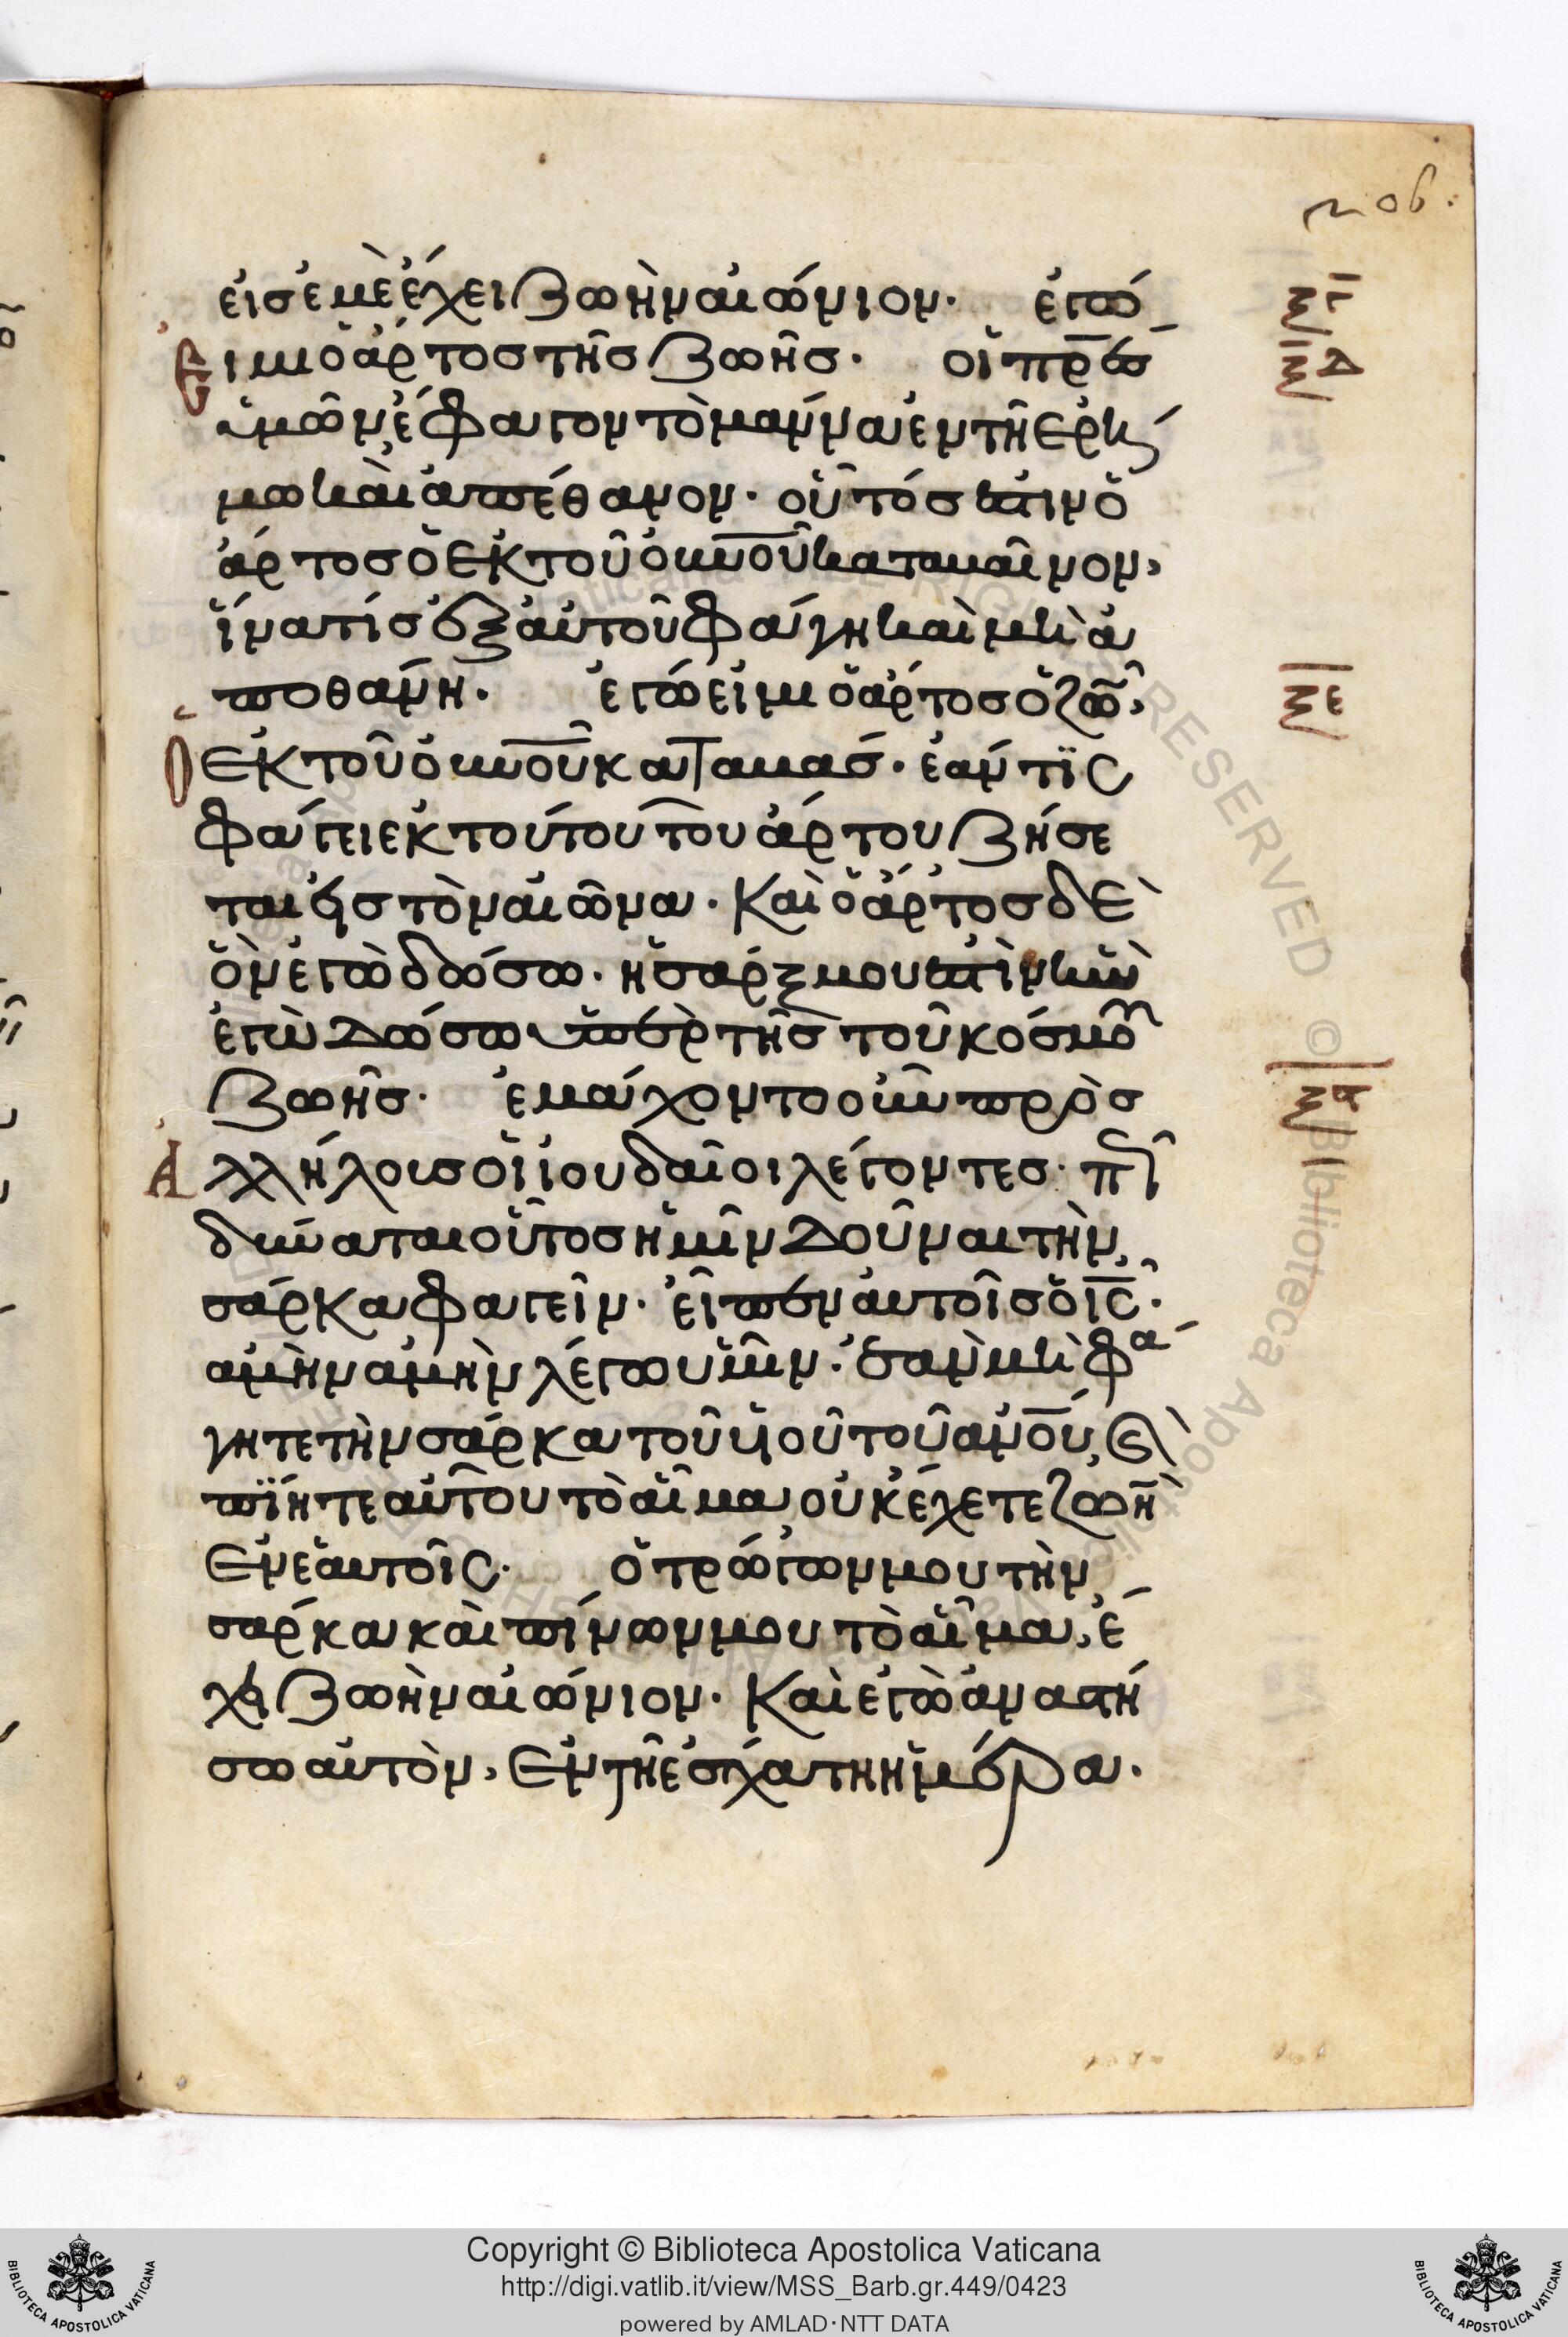 εἰσ ἐμὲ ἔχει ζωὴν αἰώνιον· ἐγώ
Εἰμι ὁ ἄρτοσ τῆσ ζωῆσ· οἱ πρ̅εσ
ὑμῶν ἔφαγον τὸ μάννα ἐν τῆ ἐρή
μω καὶ ἀπέθανον· οὗτόσ ἐστιν ὁ
ἄρτοσ ὁ ἐκ τοῦ ου̅νου̅ καταβαῖνον,
ἵνα τίσ ἐξ αὐτοῦ φάγη καὶ μὴ ἀ
ποθάνη· ἐγώ εἰμι ὁ ἄρτοσ ὁ ζῶν,
Ὁ ἐκ τοῦ ου̅νου̅ καταβάσ· ἐάν τϊς
φάγει ἐκ τούτου τοῦ ἄρτου ζήσε
ται εἰσ τὸν αἰῶνα· Καὶ ὁ ἄρτοσ δὲ
ὃν ἐγὼ δώσω· ἡ σάρξ μου ἐστὶν ἣν
ἐγὼ δώσω ὑπὲρ τῆσ τοῦ κόσμου
ζωῆσ· ἐμάχοντο οὖν πρὸσ
Ἀλλήλουσ οἱ ἰουδαῖοι λέγοντεσ· πῶσ
δύναται οὗτοσ ἡμῖν δοῦναι τὴν
σάρκα φαγεῖν· εἶπεν αὐτοῖσ ὁ ι̅ς̅·
ἀμὴν ἀμὴν λέγω ὑμῖν· ἐὰν μὴ φά
γητε τὴν σάρκα τοῦ υἱοῦ τοῦ α̅νο̅υ, καὶ
πϊητε αὐτοῦ τὸ αἷμα, οὐκ ἔχετε ζωὴν
ἐν ἑαυτοῖς· ὁ τρώγων μου τὴν
σάρκα καὶ πίνων μου τὸ αἷμα, ἔ
χει ζωὴν αἰώνιον· Καὶ ἐγὼ ἀναστή
σω αὐτὸν, ἐν τῆ ἐσχάτη ἡμέρα·
Copyright © Biblioteca Apostolica Vaticana
http://digi.vatlib.it/view/MSS_Barb.gr.449/0423
powered by AMLAD·NTT DATA
BIBLIOTECA APOSTOLICA VATICANA
BIBLIOTECA APOSTOLICA VATICANA